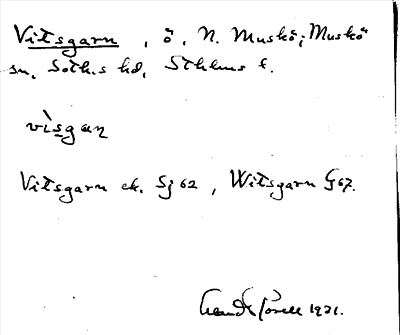 Vitsgarn, ö, N. Muskö; Muskö
sn, Soth.s hd, Sthlms l.
vìsgaɳ
Vitsgarn ek. Sj 62, Witsgarn G67.
1931.